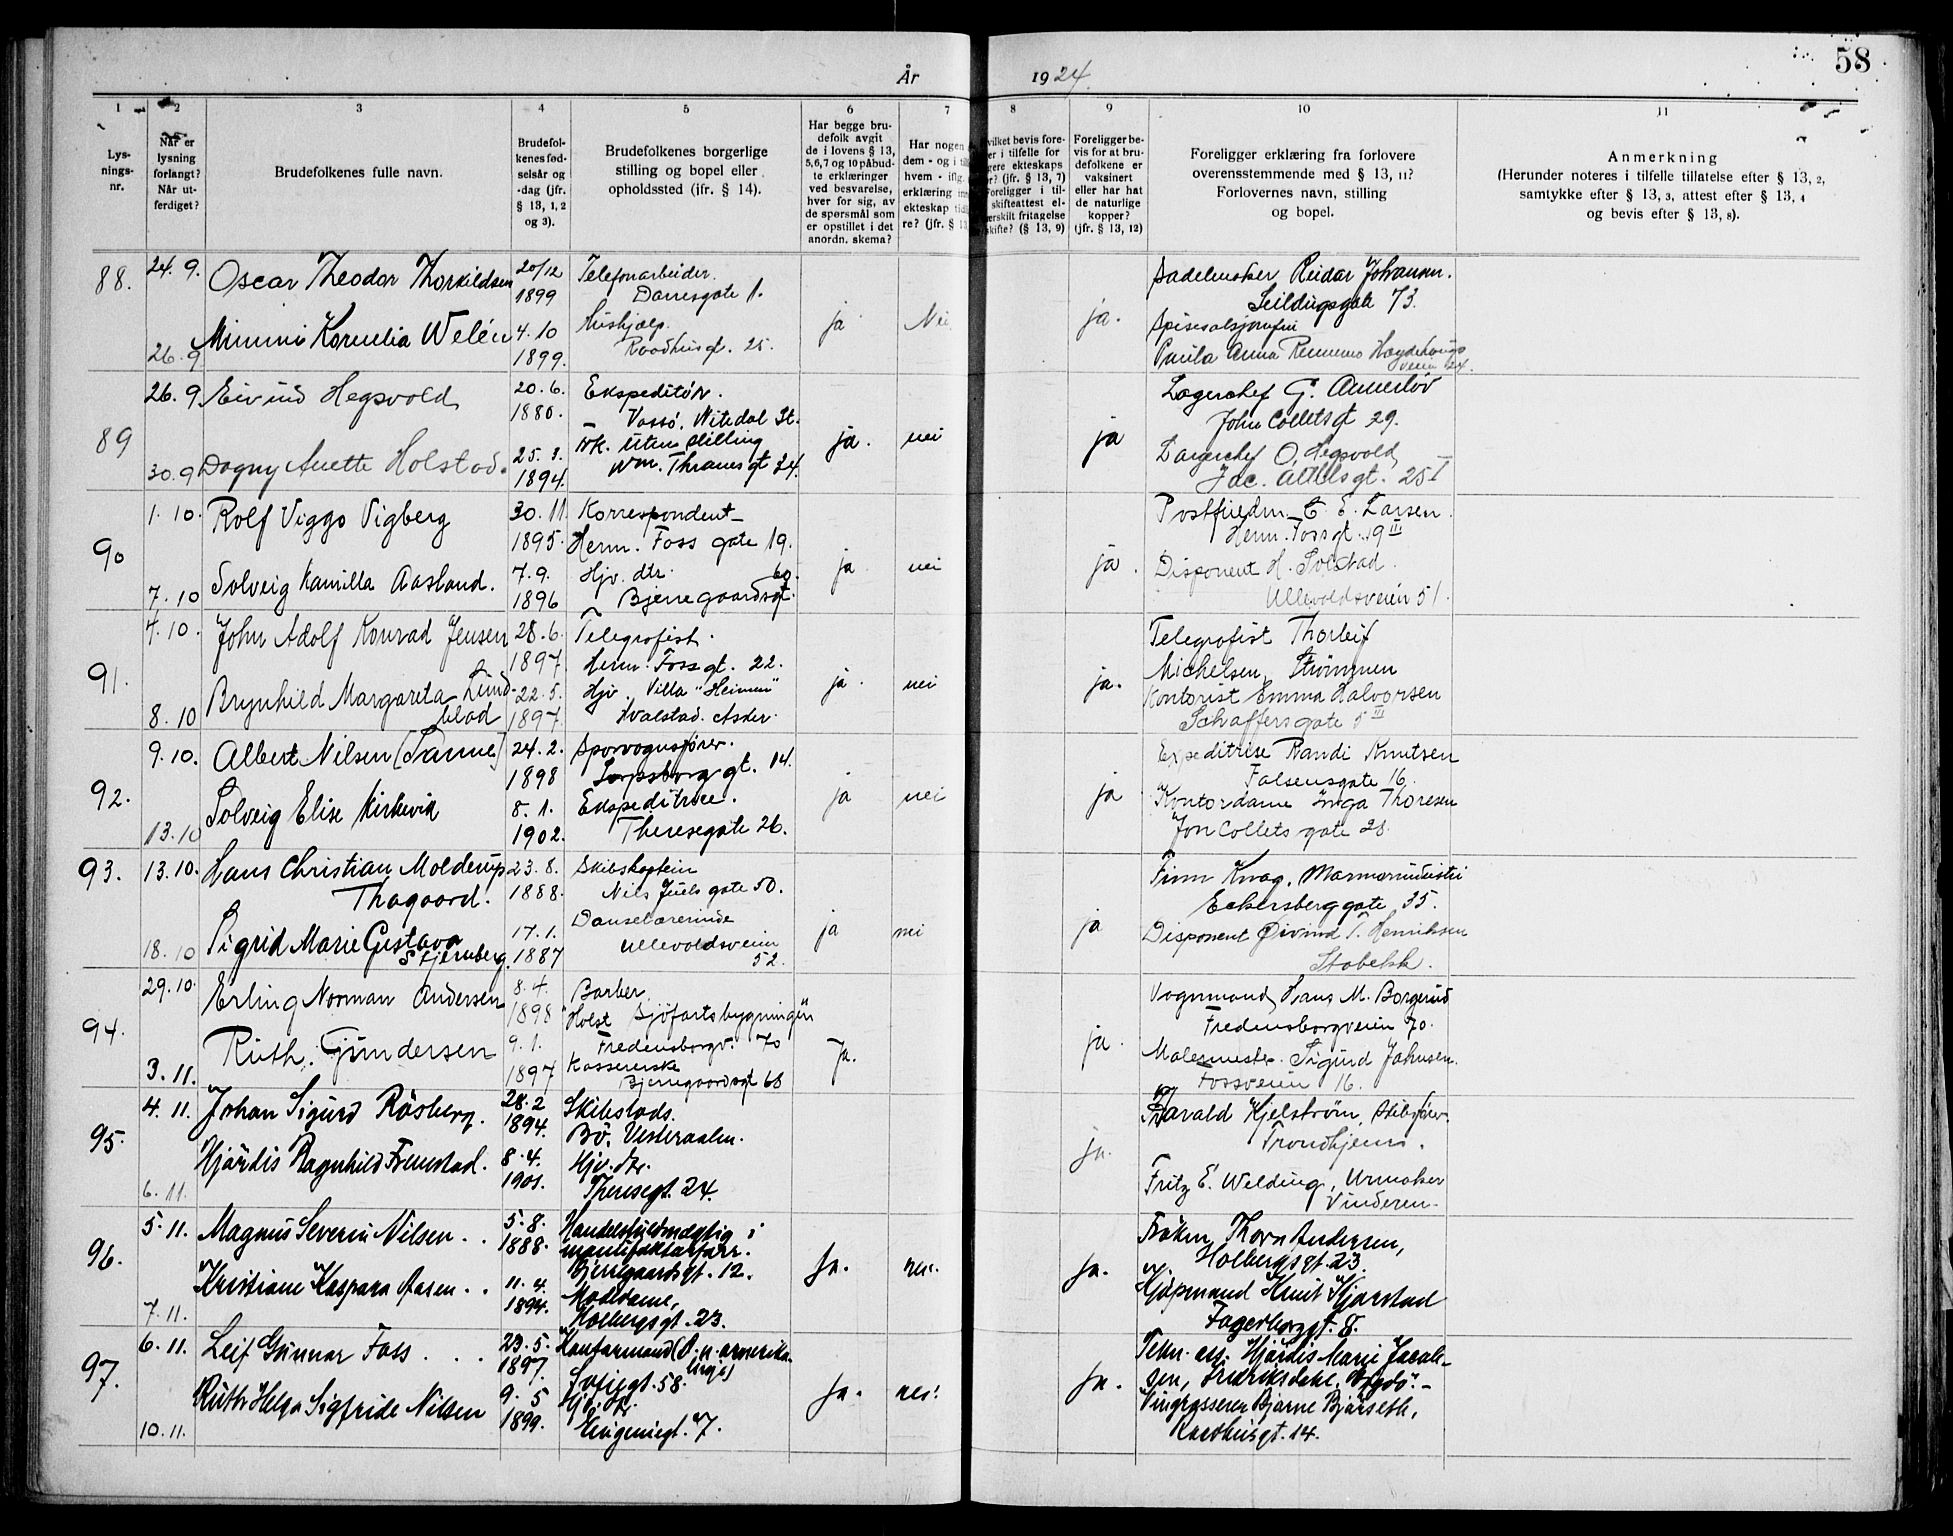 År 1924
58
1 2 3 4 5 6 7 8 9 10 11
Lys-
nings-
nr.
Når er
lysning
forlangt?
Når ut-
ferdiget?
Brudefolkenes fulle navn.
Brudefol-
kenes fød-
selsår og
-dag (jfr.
§ 13, 1, 2
og 3).
Brudefolkenes borgerlige
stilling og bopel eller
opholdssted (jfr. § 14).
Har begge bru-
defolk avgit
de i lovens § 13,
5,6,7 og 10 påbud-
te erklæringer
ved besvarelse,
hver for sig, av
de spørsmål som
er opstillet i det
anordn. skema?
Har nogen
dem - og i
hvem - iflg.
erklæring
ekteskap
re? (jfr. § 13
vilket bevis fore-
er i tilfelle for
gere ekteskaps
r? (jfr. § 13, 7)
Foreligger i til-
skifteattest el-
ærskilt fritagelse
skifte? (§ 13, 9)
Foreligger be-
vis for at bru-
defolkene er
vaksinert
eller har hat
de naturlige
kopper?
(jfr. § 13, 12)
Foreligger erklæring fra forlovere
overensstemmende med § 13, 11?
Forlovernes navn, stilling
og bopel.
Anmerkning
(Herunder noteres i tilfelle tillatelse efter § 13, 2,
samtykke efter § 13, 3, attest efter § 13, 4
og bevis efter § 13, 8).
88.
24. 9.
26. 9
Oscar Theodor Thorkildsen
Mimmi Kornelia Welén
20/12
1899
4. 10
1899.
Telefonarbeider.
Darresgate 1.
Hushjælp.
Raadhusgt. 25.
ja
Nei
ja.
Sadelmaker Reidar Johansen.
Seildugsgate 73.
Paula Anna
89
26. 9
30. 9
Eivind Hegsvold
Dagny Anette Holstad.
20. 6.
1880.
25. 3.
1894.
Ekspeditör.
Nitedal St.
frk. uten stilling
Wm. Thranesgt 74.
ja.
nei
ja
Lagerchef G. Annerløv
John Colletsgt 29.
Lagerchef O. Hegsvold
Jac. Aallsgt. 25 I
90
1. 10.
7. 10
Rolf Viggo Vigberg
Solveig Kamilla Aasland.
30. 11
1895.
7. 9.
1896
Korrespondent
Herm. Foss gate 19.
Hjv. dtr. 60.
Bjerregaardsgt.
ja
nei
ja.
Postfuldm. C. E. Larsen.
Herm. Fossgt. 19 III
Disponent H. Solstad.
Ullevoldsveien 51.
91.
7. 10.
8. 10
John Adolf Konrad Jensen
Brynhild Margareta Lund-
blad
28. 6.
1897
22. 5.
1897.
Telegrafist.
Herm. Fossgt. 22.
Hjv. Villa "Heimen"
Hvalstad. Asker.
ja.
nei
ja.
Telegrafist Thorleif
Michelsen, Strömmen
Kontorist Emma Halvorsen
Schaffers gate 5 III
92.
9. 10.
13. 10
Albert Nilsen (Sanne)
Solveig Elise Kirkevik
24. 2.
1898
8. 1.
1902.
Sporvognsfører.
Sarpsborg gt. 14.
Ekspeditrice.
Theresegate 26.
ja
nei
ja
Expeditrise Randi Knutsen
Falsensgate 16.
Kontordame Inga Thoresen
Jon Collets gate 28.
93.
13. 10.
18. 10
Hans Christian Molderup
Thagaard.
Sigrid Marie Gustava
Stjernberg.
23. 8.
1888.
17. 1.
1887
Skibskaptein
Nils Juels gate 50.
Danselærerinde
Ullevoldsveien
52.
ja
nei
ja
Finn Krag, Marmorindustri
Eckersberg gate 35.
Disponent Øivind T. Henriksen
Stabekk.
94.
29. 10.
3. 11.
Erling Norman Andersen
Ruth Gundersen
8. 4.
1898
9. 1.
1897
Barber
Holst Sjöfartsbygningen
Fredensborgv. 70
Kassererske
Bjerregaardsgt 68
Ja.
ja.
Vognmand Hans M. Borgerud
Fredensborgveien 70.
Malermester Sigurd Johnsen.
Fossveien 16.
95.
4. 11.
6. 11.
Johan Sigurd Rösberg.
Hjördis Ragnhild Fremstad.
28. 2
1894.
8. 4.
1901.
Skibstads.
Bö. Vesteraalen.
Hjv. dtr.
Theresegt. 24.
ja.
Harald Kjelström, Skibsfører
Trondhjem.
Fritz E. Welding, Urmaker
Vinderen.
96.
5. 11.
7. 11.
Magnus Severin Nilsen . .
Kristiane Kaspara Aasen . .
5. 8.
1888.
11. 4.
1894.
Handelsfuldmægtig i
manufakturforr.
Bjerregaardsgt. 12.
Modedame,
Holbergsgt. 23.
Ja.
nei.
Ja.
Fröken Thora Andersen,
Holbergsgt. 23.
Kjöpmand Knut Kjorstad
Fagerborggt. 8.
97.
6. 11.
10. 11.
Leif Gunnar Foss . . .
Ruth Helga Sigfride Nilsen
23. 5.
1897.
9. 5
1899.
Kontormand (D. n. amerika-
linje)
Sofiegt. 58.
Hjv. dtr.
Eugeniegt. 7.
Ja.
nei.
Ja.
Telen. ass. Hjördis Marie Jacob-
sen, Fredriksdahl, Bygdö. -
Vingrosserer Bjarne Bjärseth,
Raadhusgt. 14.